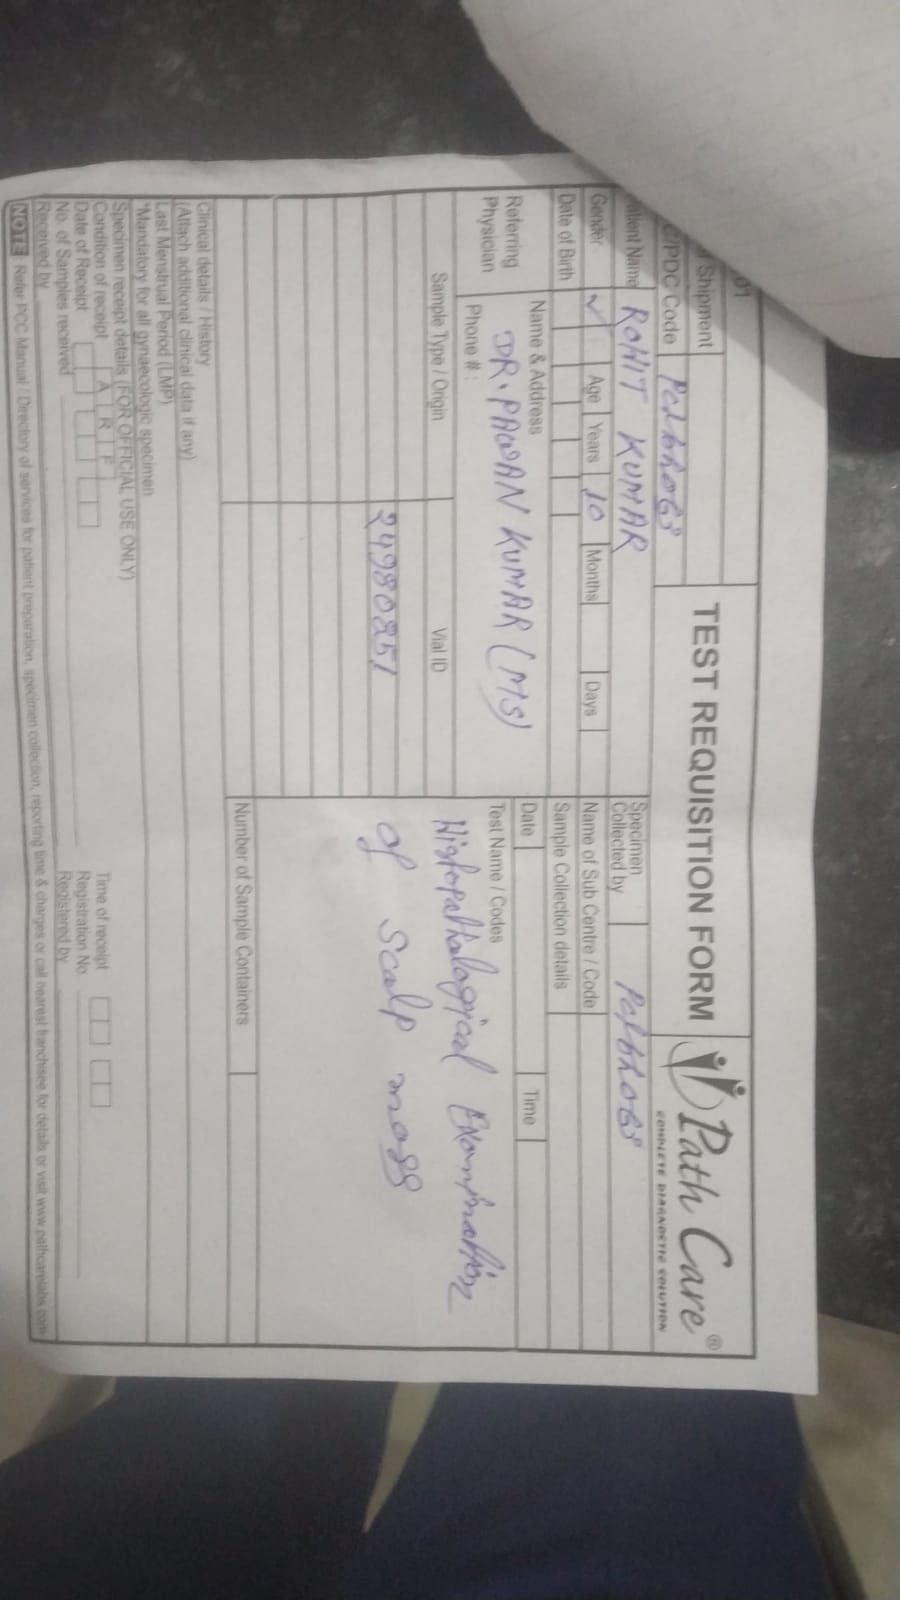 01
Shipment
TEST REQUISITION FORM
Path Care®
COMPLETE DIAGNOSTIC SOLUTION
C/PDC Code
Patient Name ROHIT KUMAR
Specimen
Collected by
Gender ✓ Age Years 10 Months Days
Name of Sub Centre / Code
Date of Birth
Sample Collection details
Referring
Physician
Name & Address
DR. PAWAN KUMAR (MS)
Phone # :
Date Time
Test Name / Codes
Histopathological Examination
of Scalp mass
Sample Type / Origin
Vial ID
24980251
Number of Sample Containers
Clinical details / History
(Attach additional clinical data if any)
Last Menstrual Period (LMP)
*Mandatory for all gynaecologic specimen
Specimen receipt details (FOR OFFICIAL USE ONLY)
Condition of receipt A R F
Time of receipt
Date of Receipt
Registration No.
No. of Samples received
Registered by
Received by
NOTE Refer PCC Manual / Directory of services for patient preparation, specimen collection, reporting time & charges or call nearest franchisee for details or visit www.pathcarelabs.com